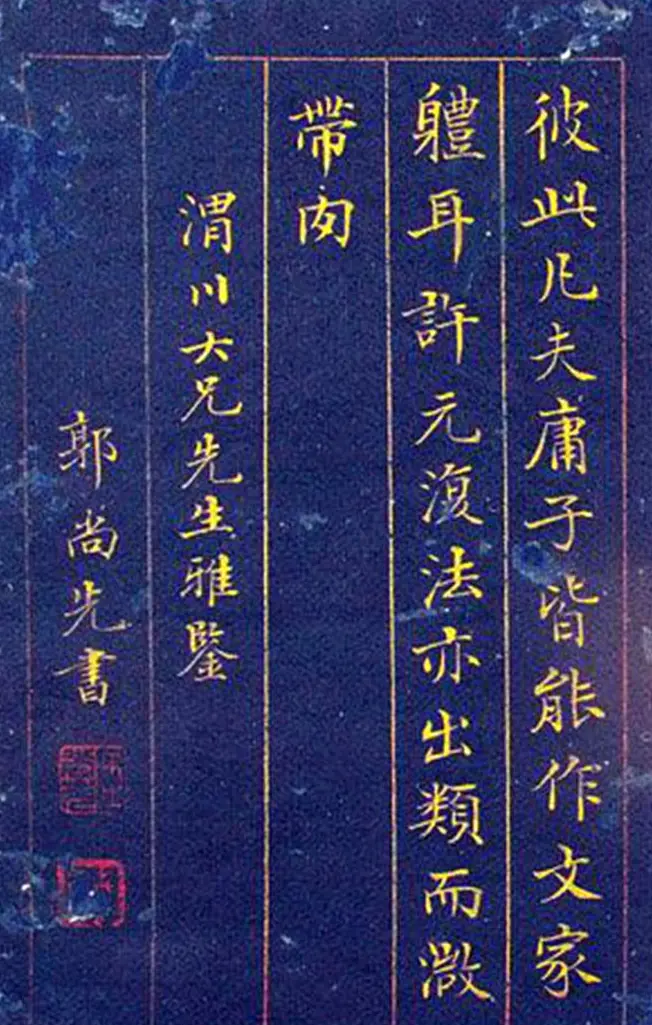 彼此凡夫庸子皆能作文家
軆耳許元復法亦出類而微
帶肉
渭川大兄先生雅鑒
郭尚先書